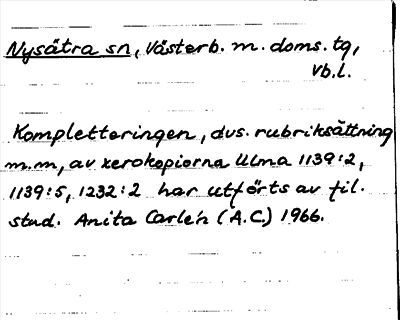 Nysätra sn, Västerb. m. doms. tg,
Vb.l.
Kompletteringen, dvs. rubriksättning
m.m, av xerokopiorna Ulma 1139:2,
1139:5, 1232:2 har utförts av fil.
stud. Anita Carlén (A.C.) 1966.